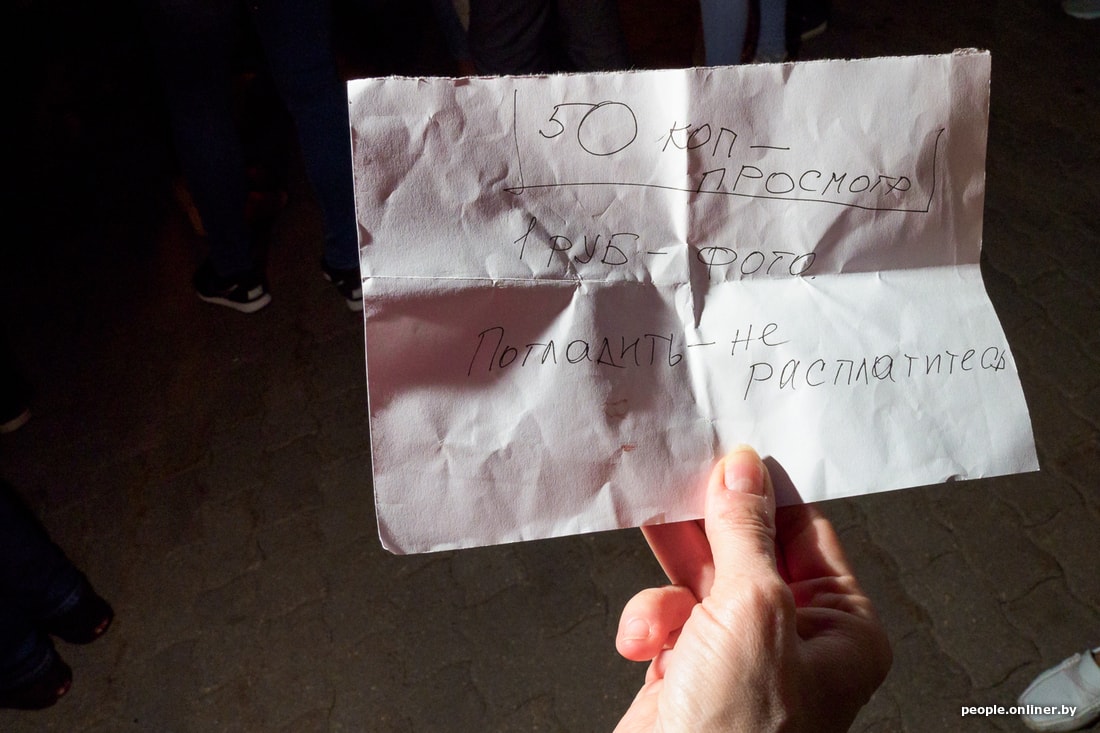 50 коп —
ПРОСМОТР
1 РУБ — ФОТО.
Погладить — не
расплатитесь
people.onliner.by